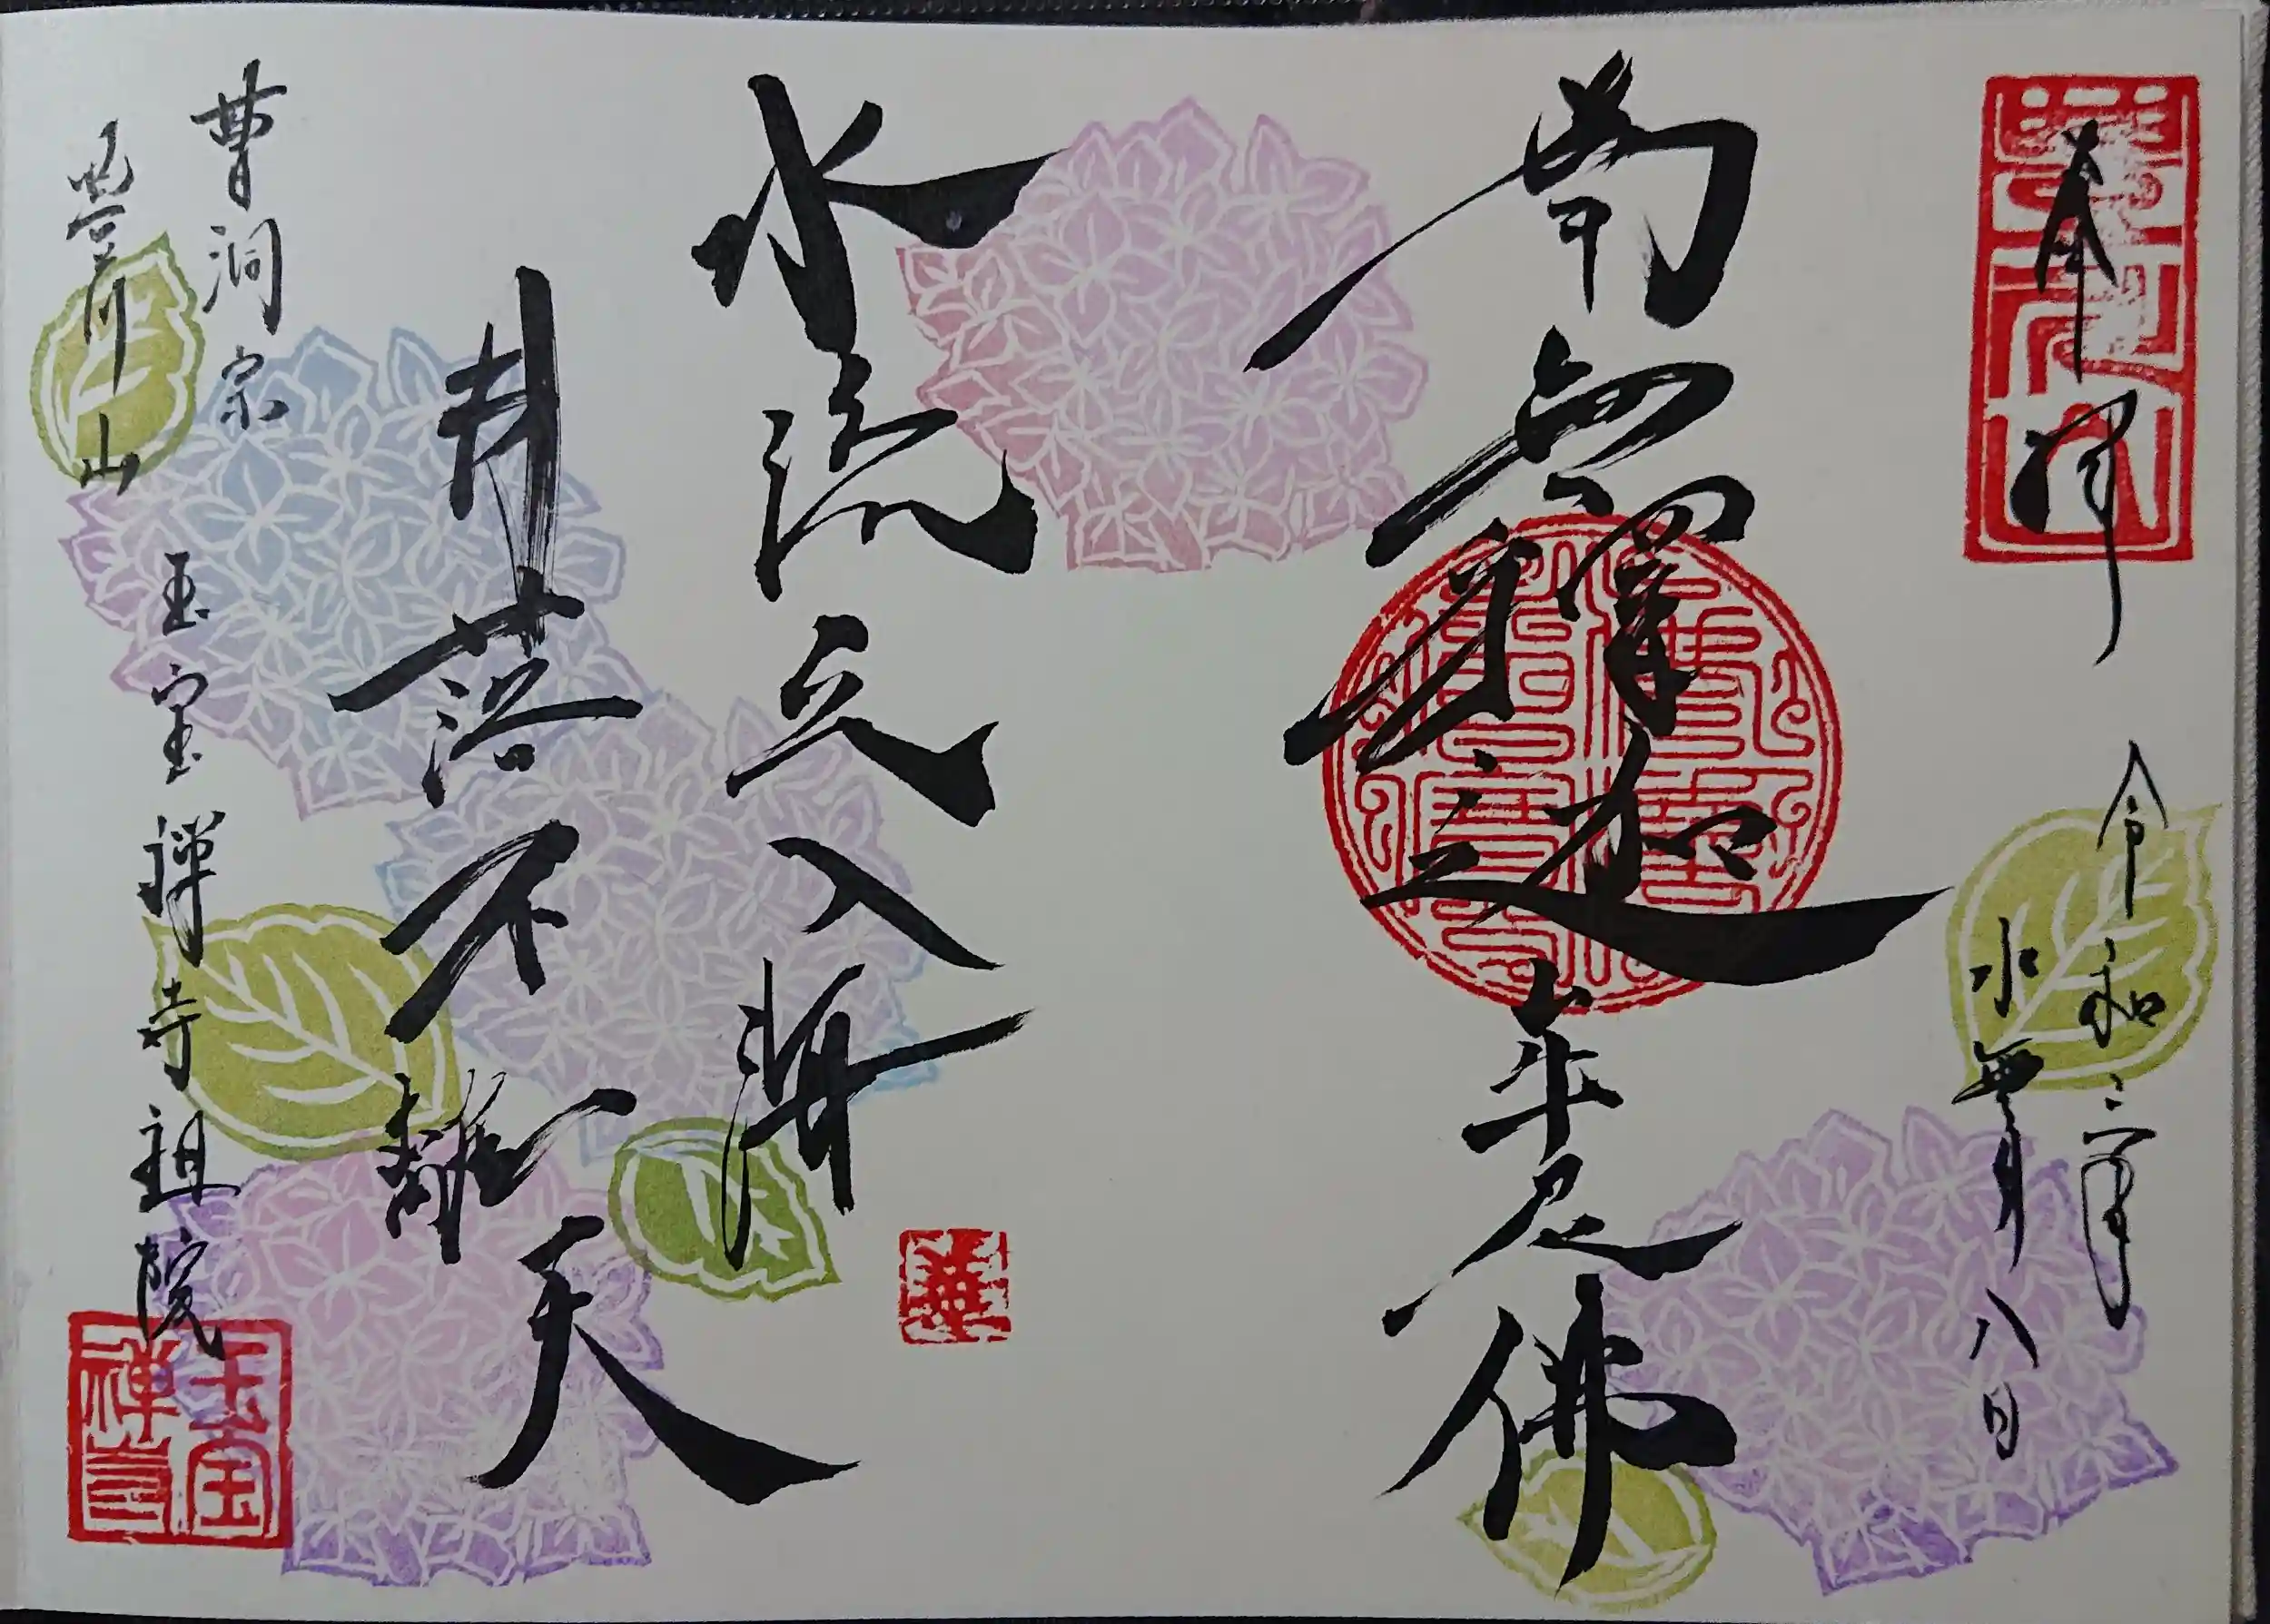 奉拝
令和三年
水無月八日
南無釋迦牟尼佛
水流元入海
月落不離天
華
曹洞宗
川山
玉宝禅寺祖院
玉宝
禅